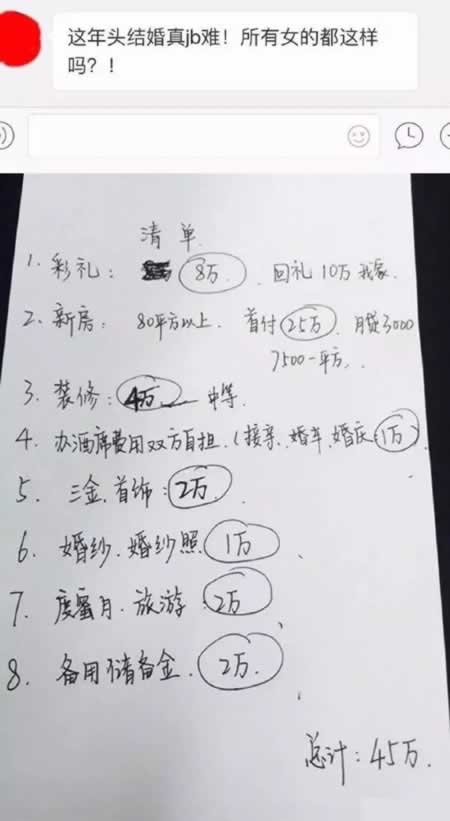 这年头结婚真jb难！所有女的都这样
吗？！
清单
1. 彩礼： 8万. 回礼10万我家.
2. 新房： 80平方以上. 首付25万 月贷3000
7500一平方.
3. 装修：4万 中等.
4. 办酒席费用双方自担.（接亲、婚车、婚庆：1万）
5. 三金.首饰：2万.
6. 婚纱.婚纱照 1万
7. 度蜜月.旅游：2万
8. 备用储备金. 2万.
总计：45万.